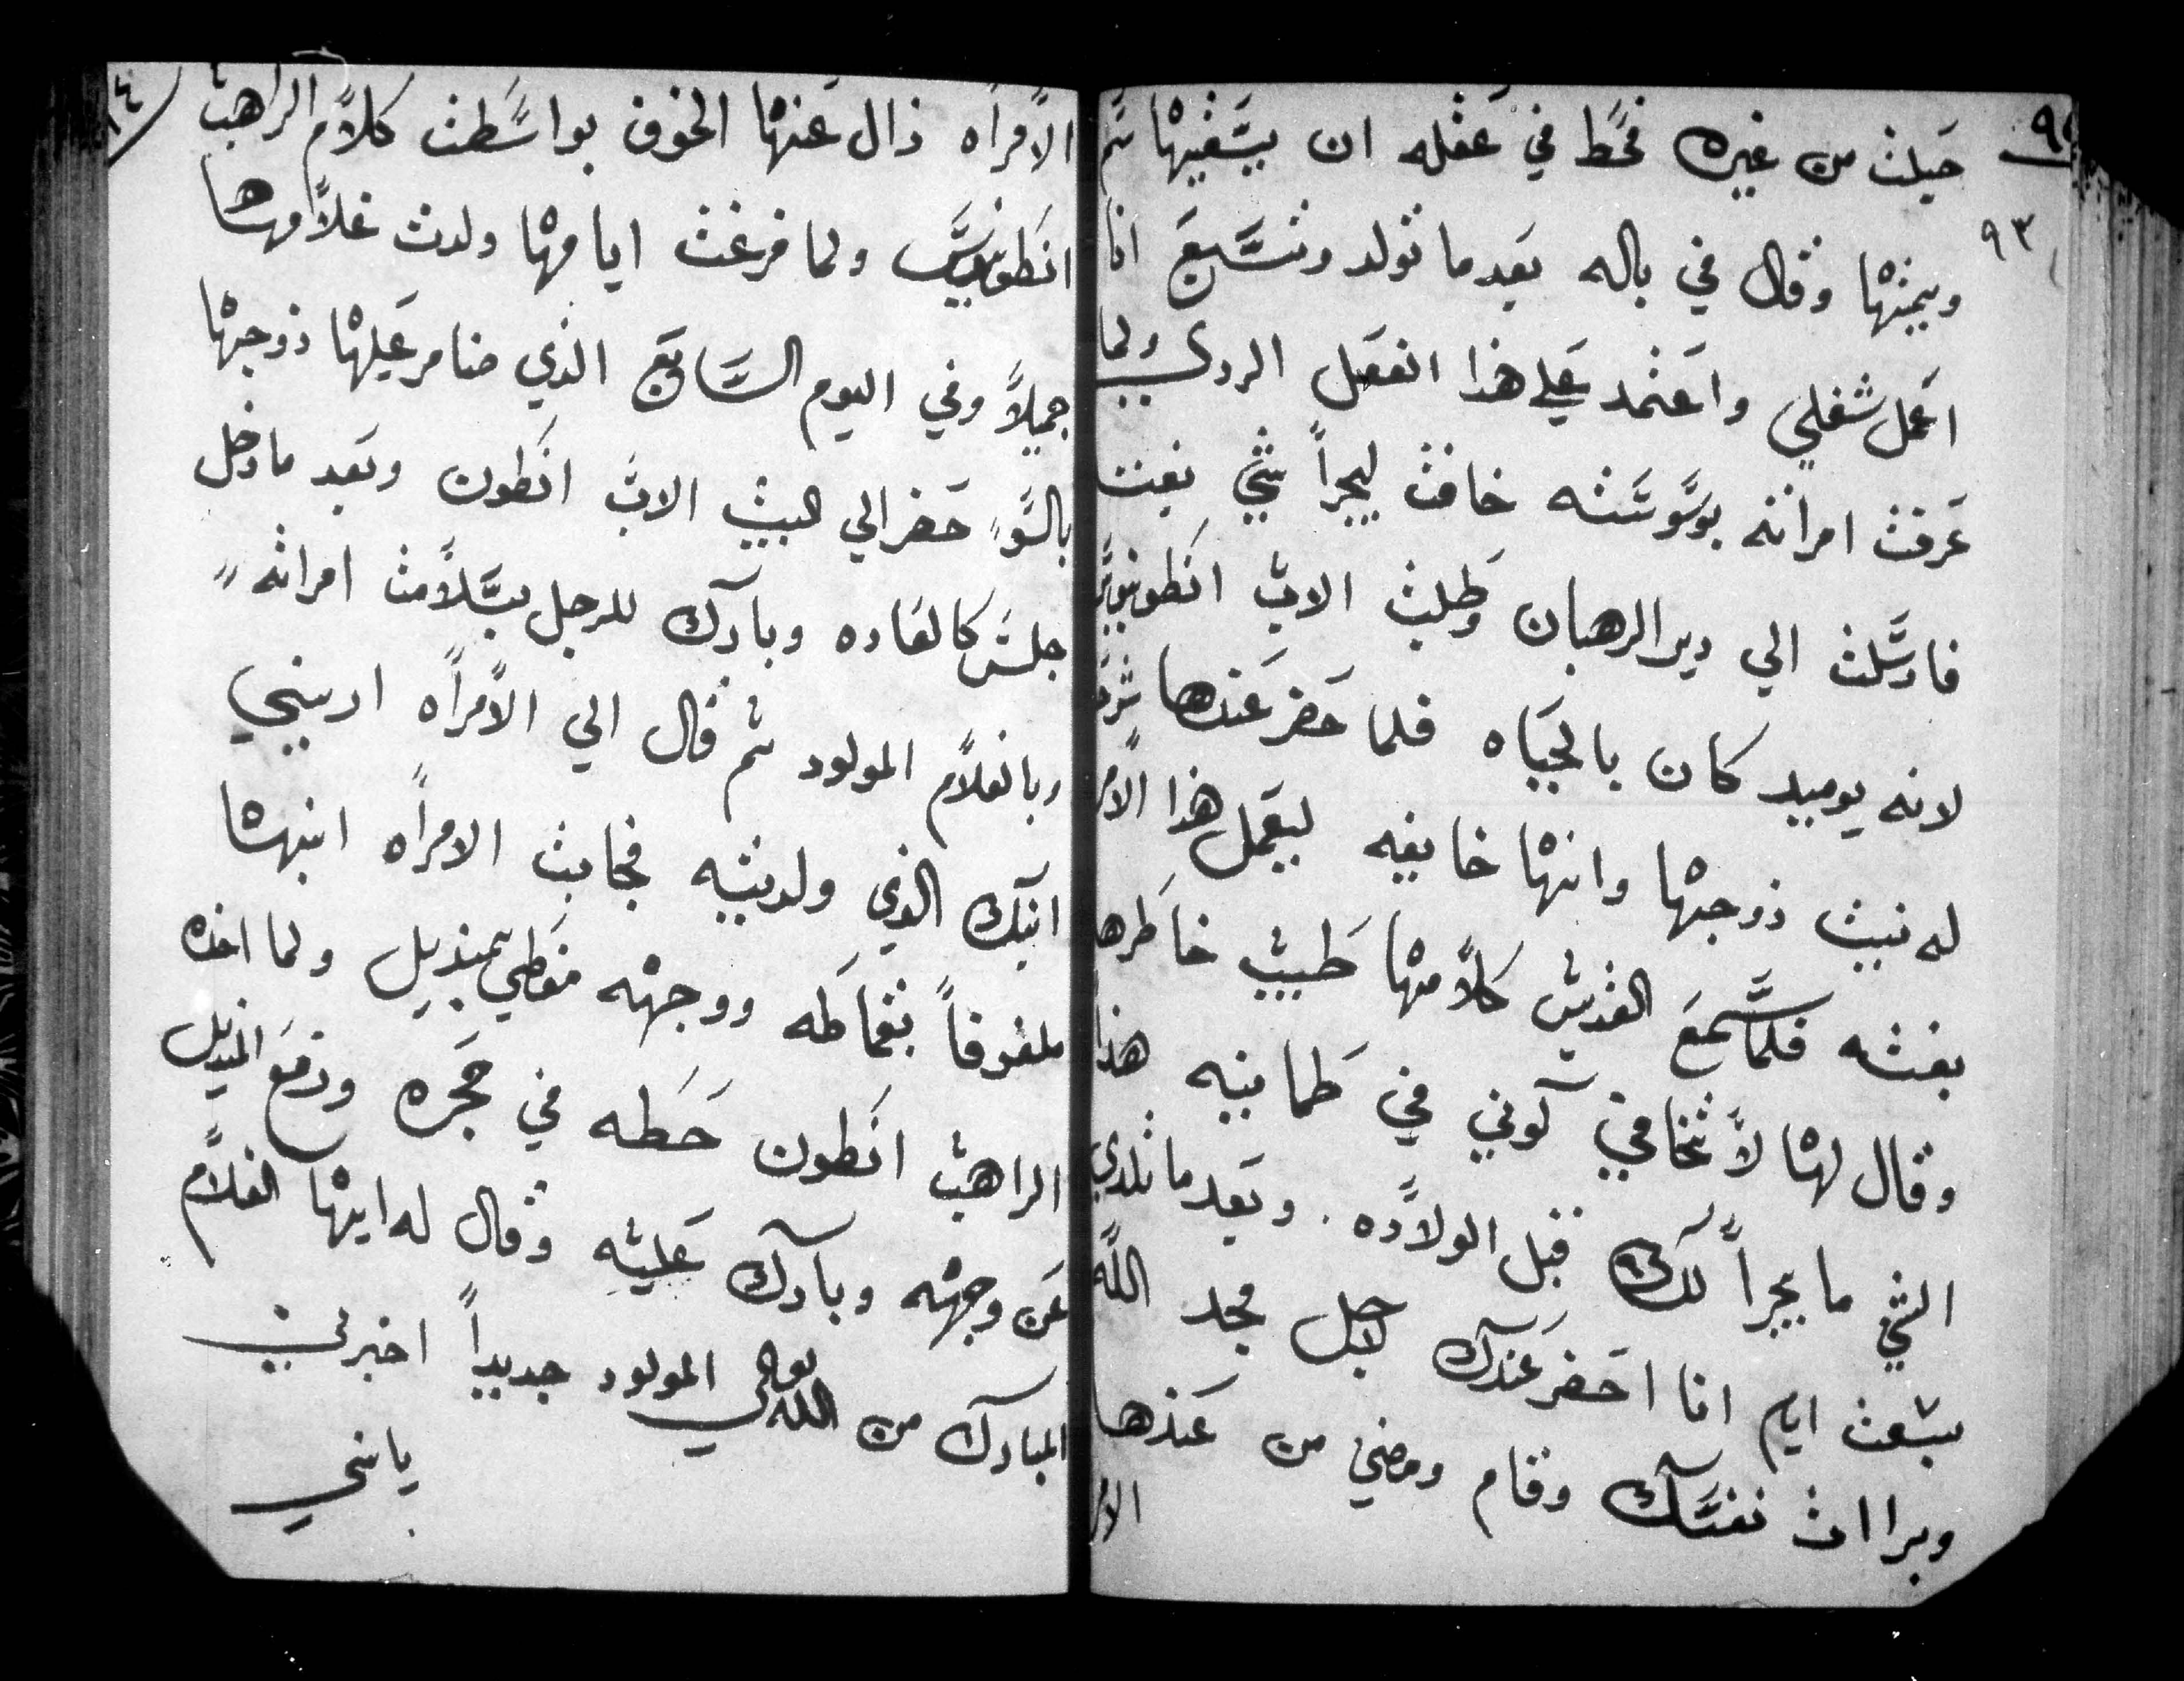 ٩٣
حبلت من غيره فحط في عقله ان يسقيها سم
ويميتها وقال في باله بعد ما تولد وتسبع انا
اعمل شغلي واعتمد علي هذا الفعل الردي ولما
عرفت امراته بوسوسته خافت ليجراً شي بغتت
فارسلت الي دير الرهبان وطلبت الاب انطونيوس
لانه يوميد كان بالحياه فلما حضر عندها شرحت
له نيت زوجها وانها خايفه ليعمل هذا الامر
بغته فلما سمع القديس كلامها طيب خاطرها
وقال لها لا تخافي كوني في طمانينه هذا
الشي ما يجراً لك قبل الولاده. وبعد ما تلدي
بسبعت ايام انا احضر عندك لاجل مجد الله
وبراات نفسك وقام ومضي من عندها
الامر
الامراه زال عنها الخوف بواسطت كلام الراهب
انطونيوس ولما فرغت ايامها ولدت غلامها
جميلاً وفي اليوم السابع الذي ضامر عليها زوجها
بالسو حضر الي البيت الاب انطون وبعد ما دخل
جلس كالعاده وبارك للرجل بسلامت امراته
وبالغلام المولود ثم قال الي الامراه اريني
ابنك الذي ولدتيه فجابت الامراه ابنها
ملفوفاً بقماطه ووجهه مغطي بمنديل ولما اخذه
الراهب انطون حطه في حجره ورفع المنديل
عن وجهه وبارك عليه وقال له ايها الغلام
المبارك من الله تعالي المولود جديداً اخبرني
يابني